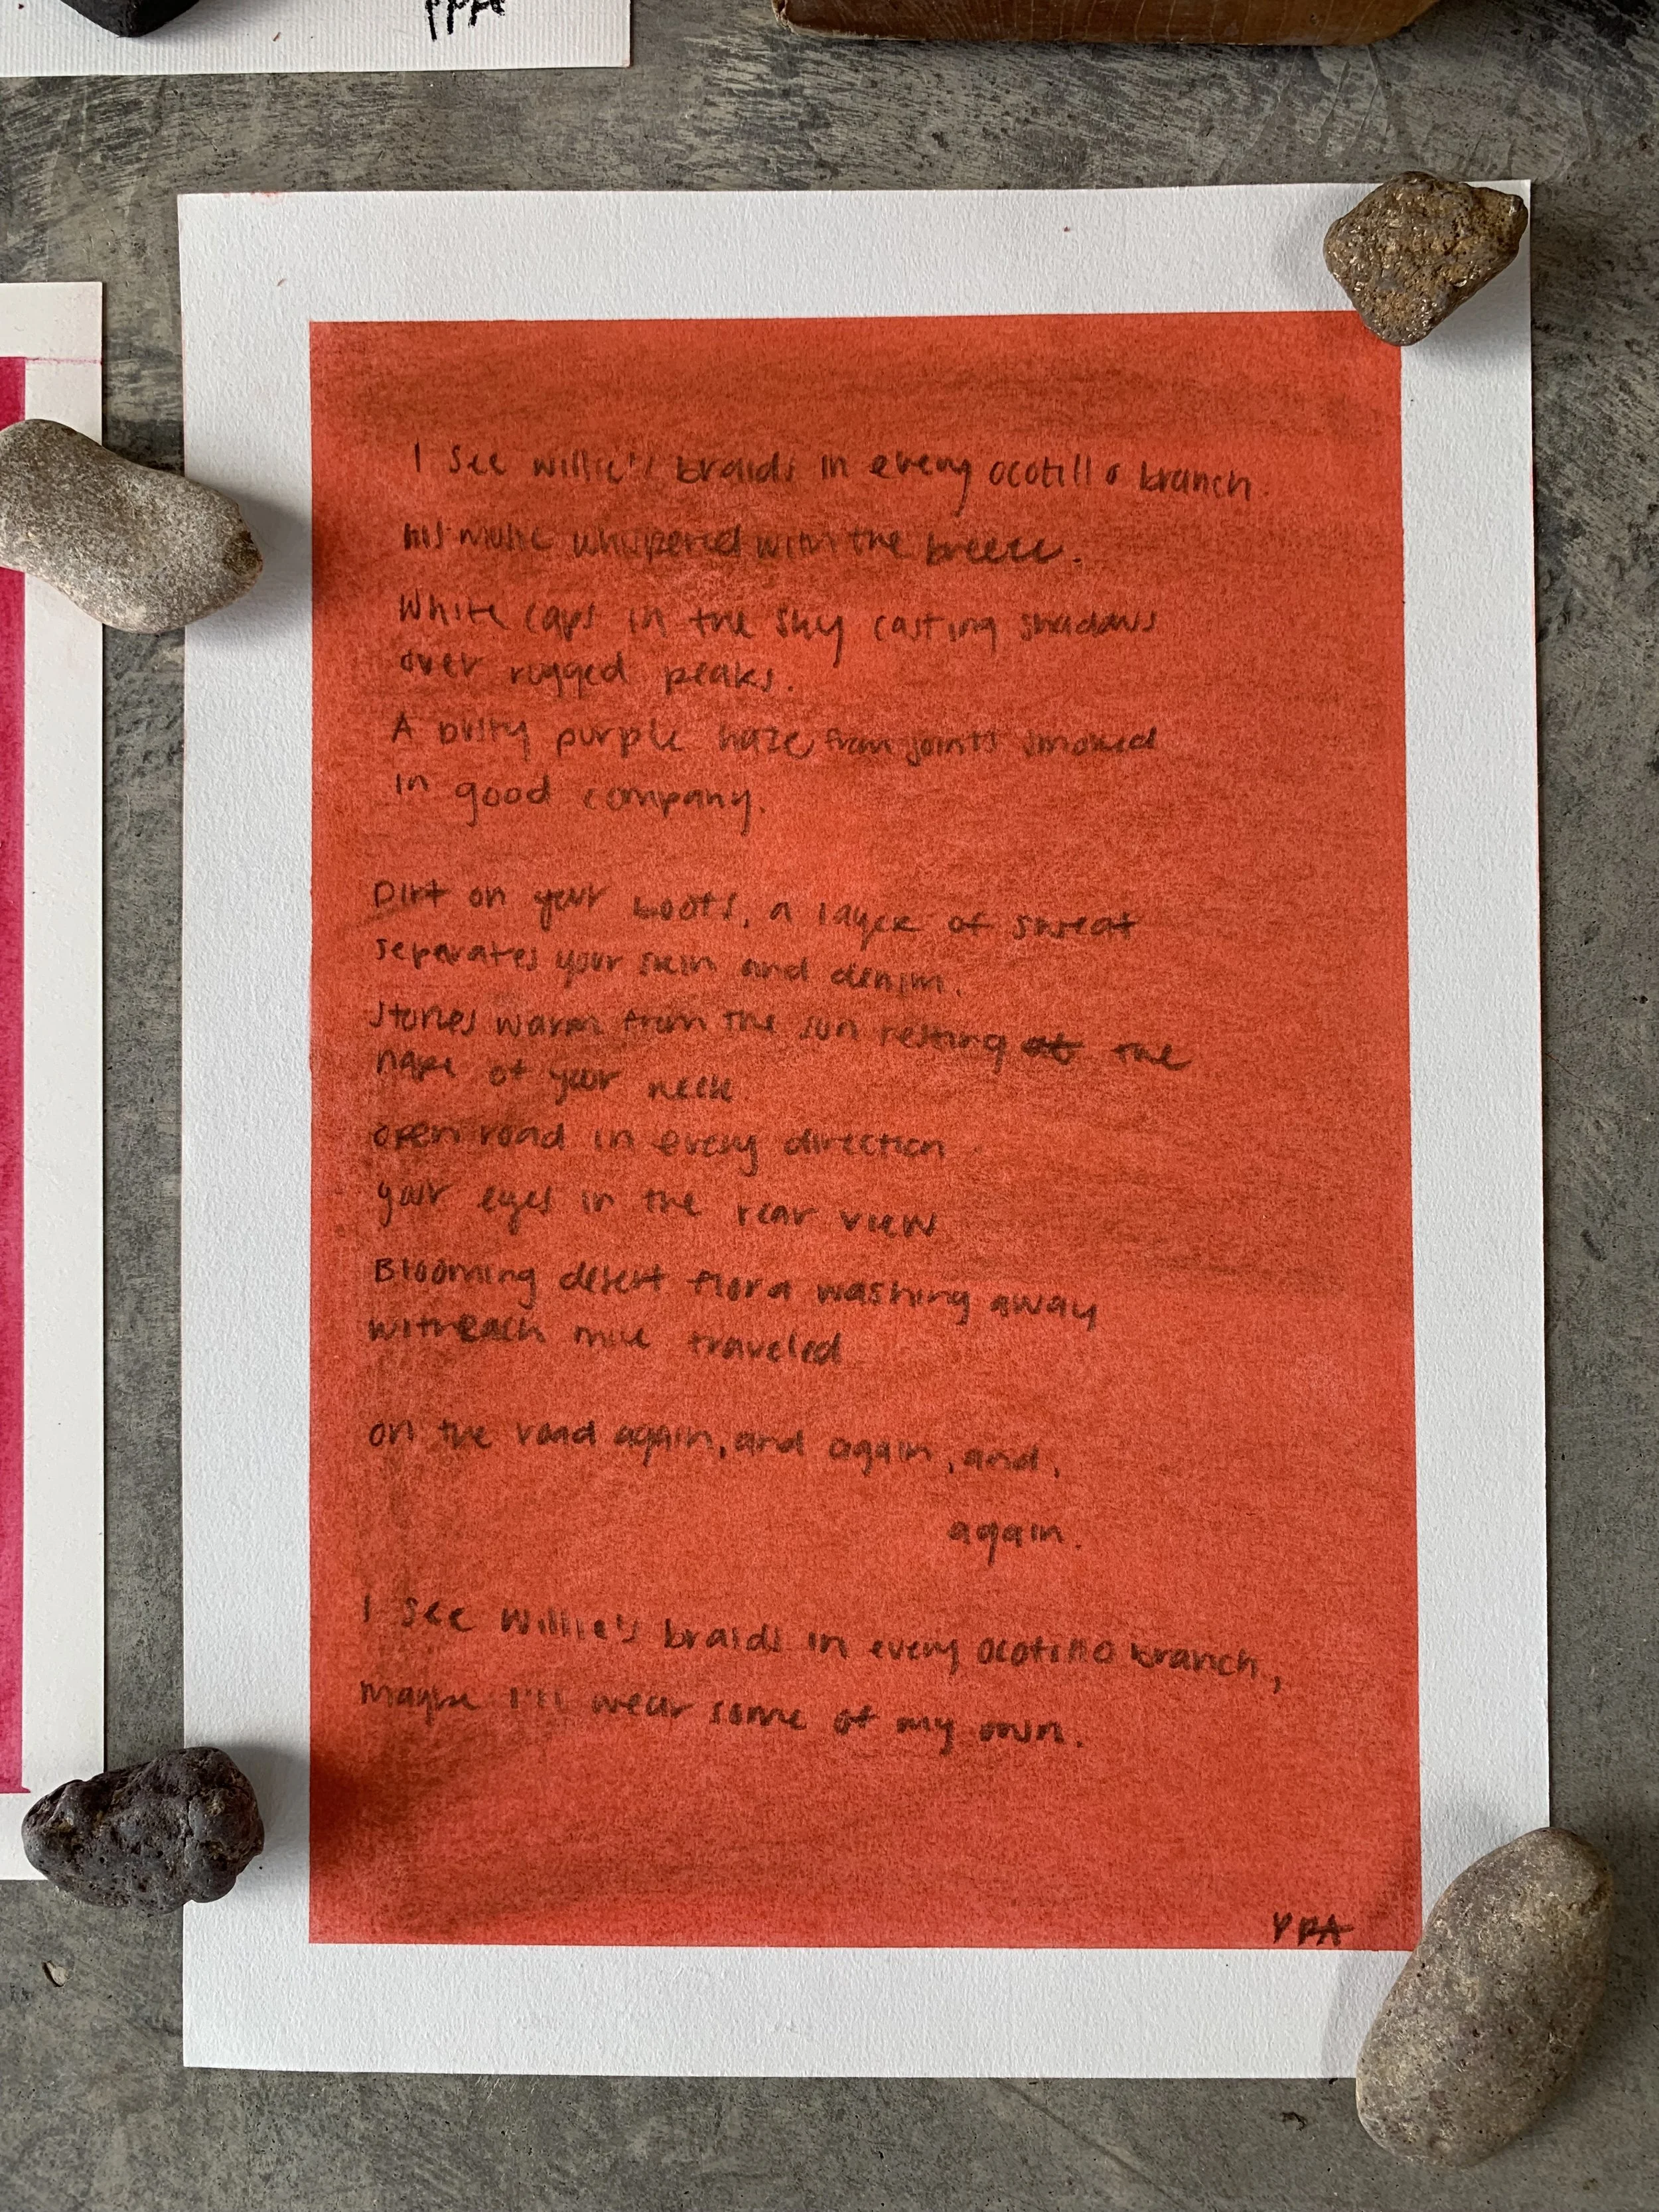 PPA
I see Willie's braids in every ocotillo branch.
his music whispered with the breeze.
White caps in the sky casting shadows
over rugged peaks.
A dusty purple haze from joints smoked
in good company.
Dirt on your boots, a layer of sweat
separates your skin and denim.
Stones warm from the sun resting at the
nape of your neck.
open road in every direction
your eyes in the rear view
Blooming desert flora washing away
with each mile traveled
on the road again, and again, and,
again.
I see Willie's braids in every ocotillo branch,
maybe I'll wear some of my own.
PPA